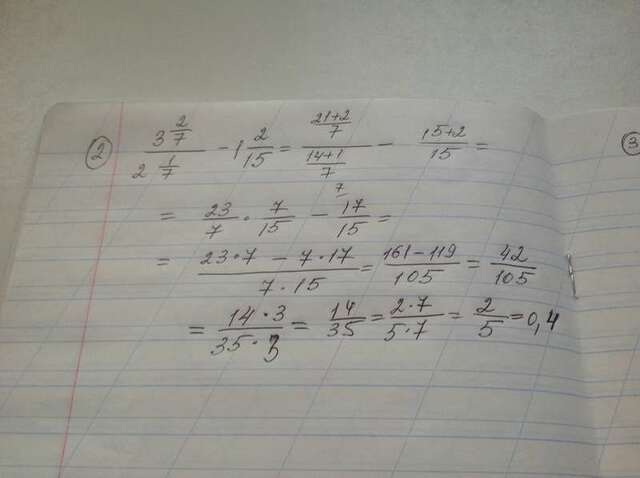 ② 3 2/7 / 2 1/7 - 1 2/15 = (21+2)/7 / (14+1)/7 - (15+2)/15 =
= 23/7 · 7/15 - 17/15 = 7
= (23·7 - 7·17)/(7·15) = (161-119)/105 = 42/105
= (14·3)/(35·3) = 14/35 = (2·7)/(5·7) = 2/5 = 0,4
③